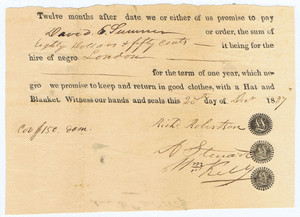 Twelve months after date we or either of us promise to pay
David E. Sumner or order, the sum of
Eighty Dollars & fifty cents — it being for the
hire of negro London
for the term of one year, which ne-
gro we promise to keep and return in good clothes, with a Hat and
Blanket. Witness our hands and seals this day of 18
Robertson
A Stewart
Kelly